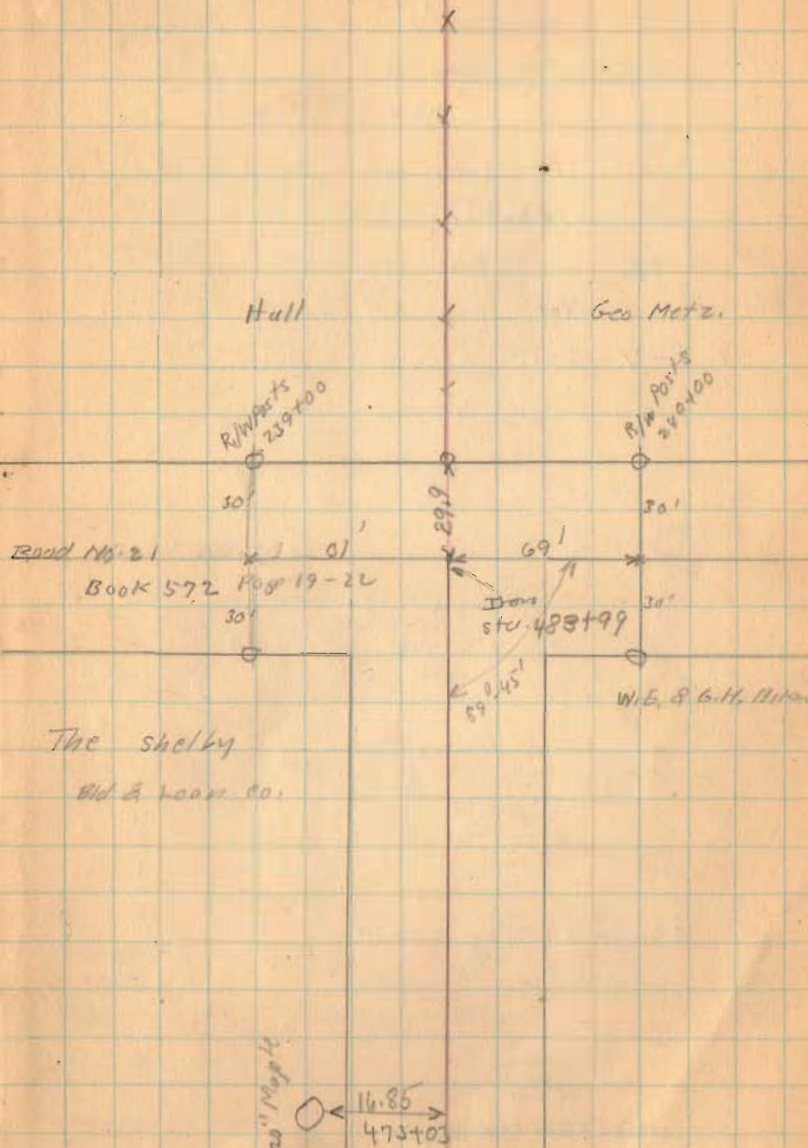 Hull
Geo Metz.
R/W Posts
239+00
R/W Posts
240+00
30'
29.9
30'
Road No. 21
01'
69'
Book 572 Page 19-22
Iron
sta. 483+99
30'
30'
89°45'
W.E. & G.H.
The Shelby
Bld & Loan Co.
20" Maple
16.85
473+03